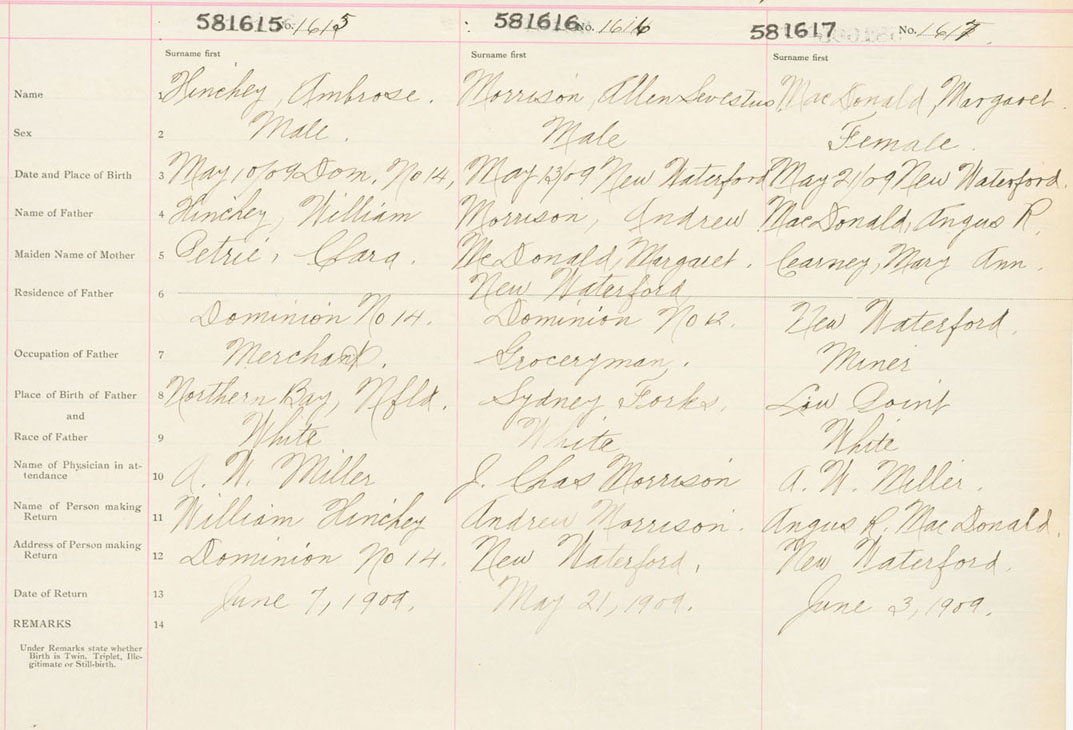 581615 No. 1615 581616 No. 1616 581617 No. 1617
Surname first Surname first Surname first
Name 1 Hinchey, Ambrose. Morrison, Allen Sevestus MacDonald, Margaret.
Sex 2 Male. Male Female.
Date and Place of Birth 3 May 10/09 Dom. No 14, May 13/09 New Waterford May 21/09 New Waterford.
Name of Father 4 Hinchey, William Morrison, Andrew MacDonald, Angus R.
Maiden Name of Mother 5 Petrie, Clara. McDonald, Margaret. Carney, Mary Ann.
Residence of Father 6 New Waterford
Dominion No 14. Dominion No 12. New Waterford.
Occupation of Father 7 Merchant. Groceryman. Miner
Place of Birth of Father 8 Northern Bay, Nfld. Sydney Forks. Low Point
and
Race of Father 9 White White White
Name of Physician in at-
tendance 10 A. W. Miller J. Chas Morrison A. W. Miller.
Name of Person making
Return 11 William Hinchey Andrew Morrison. Angus R. MacDonald.
Address of Person making
Return 12 Dominion No 14. New Waterford, New Waterford.
Date of Return 13 June 7, 1909. May 21, 1909. June 3, 1909.
REMARKS 14
Under Remarks state whether
Birth is Twin, Triplet, Ille-
gitimate or Still-birth.